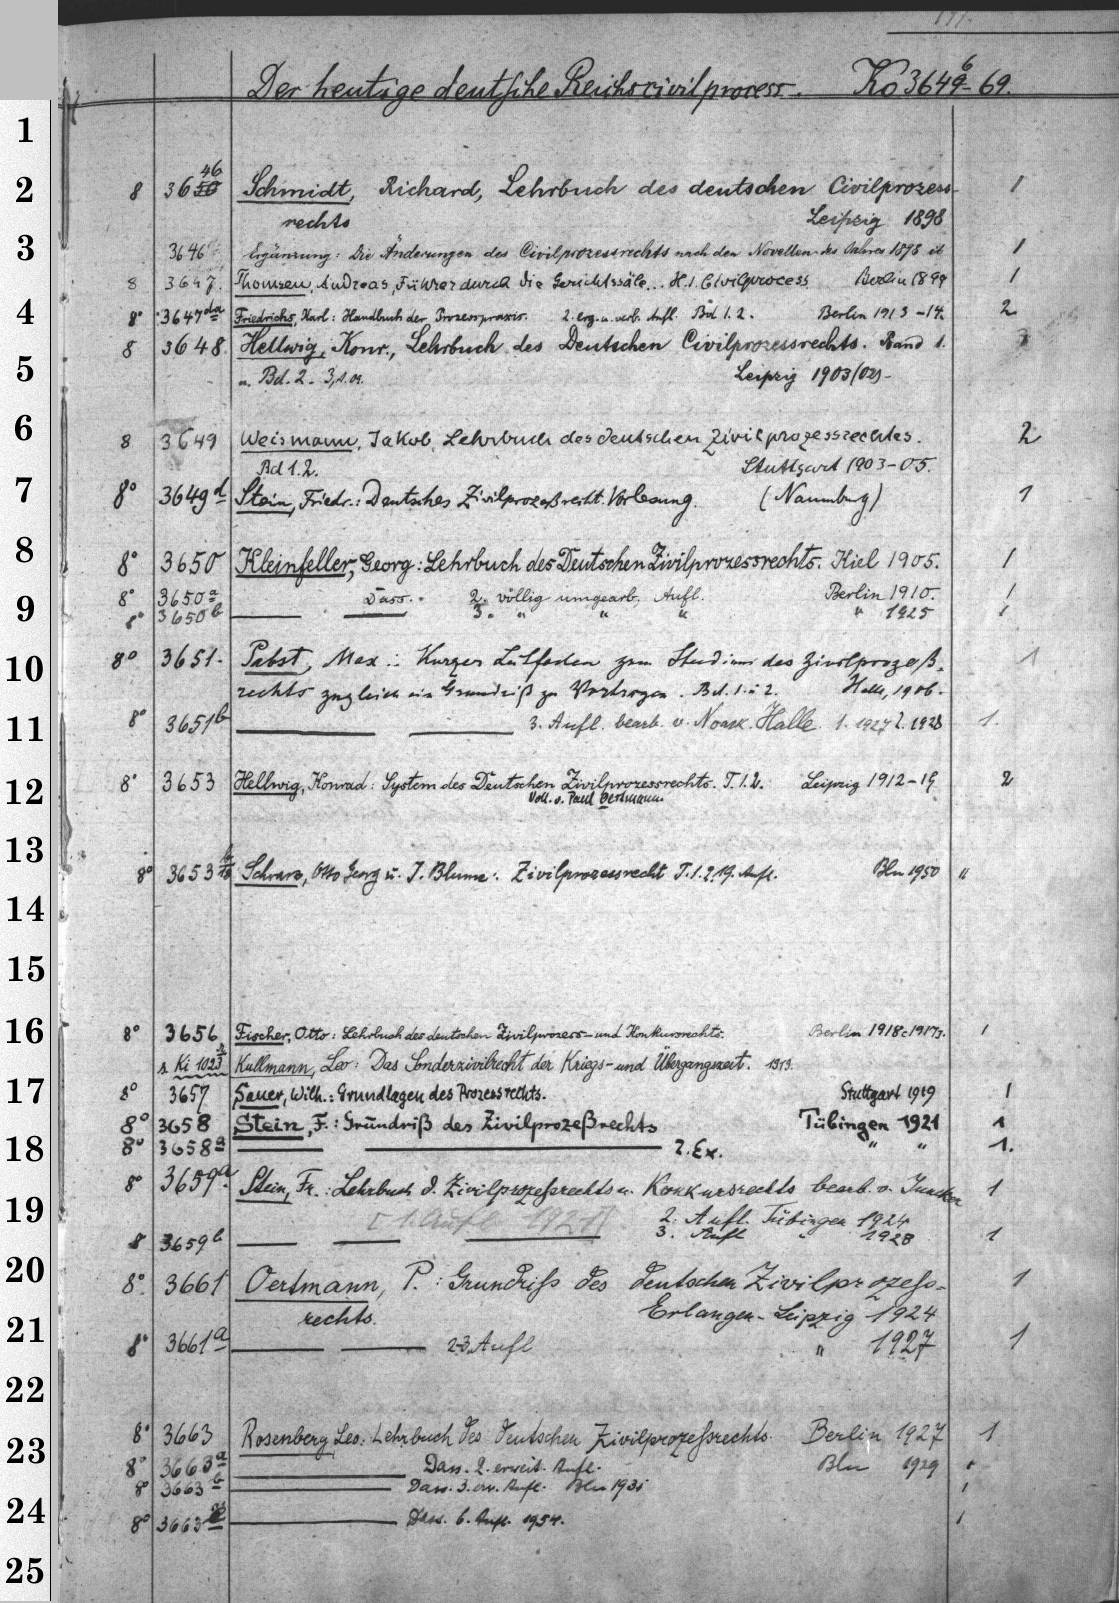 Der heutige deutsche Reichscivilprocess. Ko 3646-69.
1
2
8 3646 Schmidt, Richard, Lehrbuch des deutschen Civilprozess- 1
rechts Leipzig 1898
3
3646 Ergänzung: Die Änderungen des Civilprozessrechts nach den Novellen des Jahres 1898 1
8 3647. Thomsen, Andreas, Führer durch die Gerichtssäle... H.1. Civilprocess Berlin 1899 1
4
8° 3647 Friedrichs, Karl: Handbuch der Prozesspraxis. 2. erg. u. verb. Aufl. Bd 1.2. Berlin 1913-14. 2
8 3648. Hellwig, Konr., Lehrbuch des Deutschen Civilprozessrechts. Band 1. 3
5
u. Bd. 2-3, Leipzig 1903
6
8 3649 Weismann, Jakob, Lehrbuch des deutschen Zivilprozessrechtes. 2
Bd 1.2. Stuttgart 1903-05.
7
8° 3649d Stein, Friedr.: Deutsches Zivilprozeßrecht. Vorlesung. (Naumburg) 1
8
8° 3650 Kleinfeller, Georg: Lehrbuch des Deutschen Zivilprozessrechts. Kiel 1905. 1
8° 3650a Dass. 2. völlig umgearb. Aufl. Berlin 1910. 1
9
8° 3650b 3. " " " " 1925 1
10
8° 3651. Pabst, Max: Kurzer Leitfaden zum Studium des Zivilprozeß- 1
rechts zugleich ein Grundriß zu Vorträgen. Bd. 1. 2. Halle, 1906.
11
8° 3651b 3. Aufl. bearb. v. Noack. Halle 1. 1927 2. 1928 1.
12
8° 3653 Hellwig, Konrad: System des Deutschen Zivilprozessrechts. T.1.2. Leipzig 1912-19 2
Voll. v. Paul Oertmann.
13
8° 3653 Schwarz, Otto Georg u. J. Blume: Zivilprozessrecht T.1.2. 19. Aufl. Bln 1950 "
14
15
16
8° 3656 Fischer, Otto: Lehrbuch des deutschen Zivilprozess- und Konkursrechts. Berlin 1918 1
s. Ki 1023 Kullmann, Leo: Das Sonderzivilrecht der Kriegs- und Übergangszeit. 1919.
17
8° 3657 Sauer, Wilh.: Grundlagen des Prozessrechts. Stuttgart 1919 1
8° 3658 Stein, F.: Grundriß des Zivilprozeßrechts Tübingen 1921 1
18
8° 3658a 2. Ex. " " 1.
8° 3659a. Stein, Fr.: Lehrbuch d. Zivilprozeßrechts u. Konkursrechts bearb. v. Juncker 1
19
[1. Aufl. 1921] 2. Aufl. Tübingen 1924
8 3659b 3. Aufl " 1928 1
20
8° 3661 Oertmann, P.: Grundriss des deutschen Zivilprozess- 1
rechts. Erlangen-Leipzig 1924
21
8° 3661a 2-3. Aufl " 1927 1
22
8° 3663 Rosenberg Leo: Lehrbuch des deutschen Zivilprozessrechts. Berlin 1927 1
23
8° 3663a Dass. 2. erweit. Aufl. Bln 1929
8° 3663b Dass. 3. erw. Aufl. Bln 1931
24
8° 3663 Dass. 6. Aufl. 1954.
25